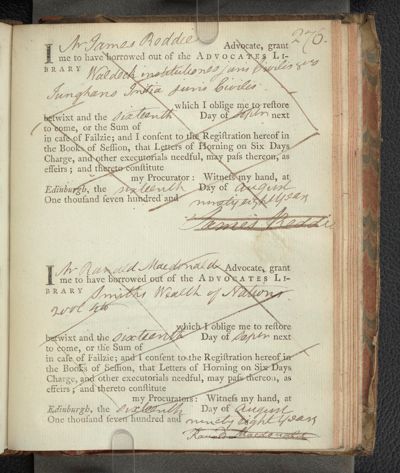 276.
I Mr James Reddie Advocate, grant
me to have borrowed out of the ADVOCATES LI-
BRARY institutiones Juris Civilis 8vo
Juris Civilis
which I oblige me to reſtore
betwixt and the sixteenth Day of next
to come, or the Sum of
in caſe of Failzie; and I conſent to the Regiſtration hereof in
the Books of Seſſion, that Letters of Horning on Six Days
Charge, and other executorials needful, may paſs thereon, as
effeirs; and thereto conſtitute
my Procurator: Witneſs my hand, at
Edinburgh, the sixteenth Day of August
One thouſand ſeven hundred and ninety eight years
James Reddie
I Mr Ranald Macdonald Advocate, grant
me to have borrowed out of the ADVOCATES LI-
BRARY Smiths Wealth of Nations
2 vols 4to
which I oblige me to reſtore
betwixt and the sixteenth Day of next
to come, or the Sum of
in caſe of Failzie; and I conſent to the Regiſtration hereof in
the Books of Seſſion, that Letters of Horning on Six Days
Charge, and other executorials needful, may paſs thereon, as
effeirs; and thereto conſtitute
my Procurators: Witneſs my hand, at
Edinburgh, the sixteenth Day of August
One thouſand ſeven hundred and ninety eight years
Ranald Macdonald